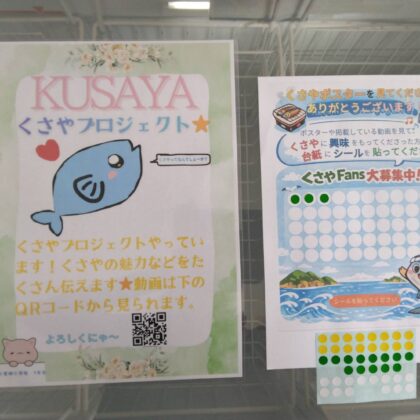 KUSAYA
くさやプロジェクト★
くさやプロジェクトやってい
ます！くさやの魅力などをた
くさん伝えます★動画は下の
QRコードから見られます。
よろしくにゃ〜
くさやポスターを見てくださ
ありがとうございます
ポスターや掲載している動画を見て
くさやに興味をもってくださった方
台紙にシールを貼ってくだ
くさやFans大募集中！
シールを貼ってください